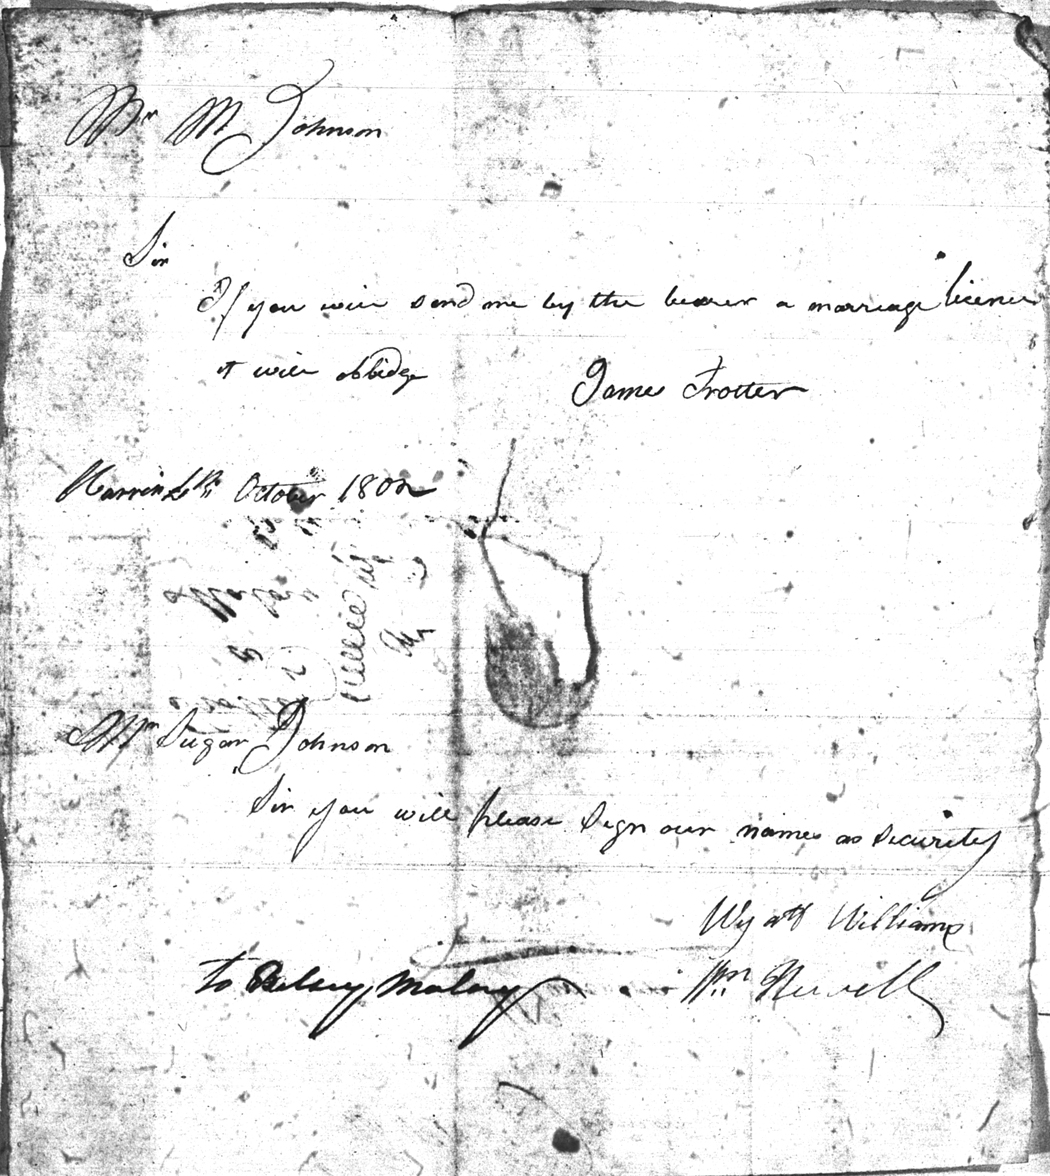 Mr M Johnson
Sir
If you will send me by the bearer a marriage licence
it will oblidge
James Trotter
October 1802
Mr Sugar Johnson
Sir you will please Sign our names as Security
Wyatt Williams
to Betsey Malory
Wm